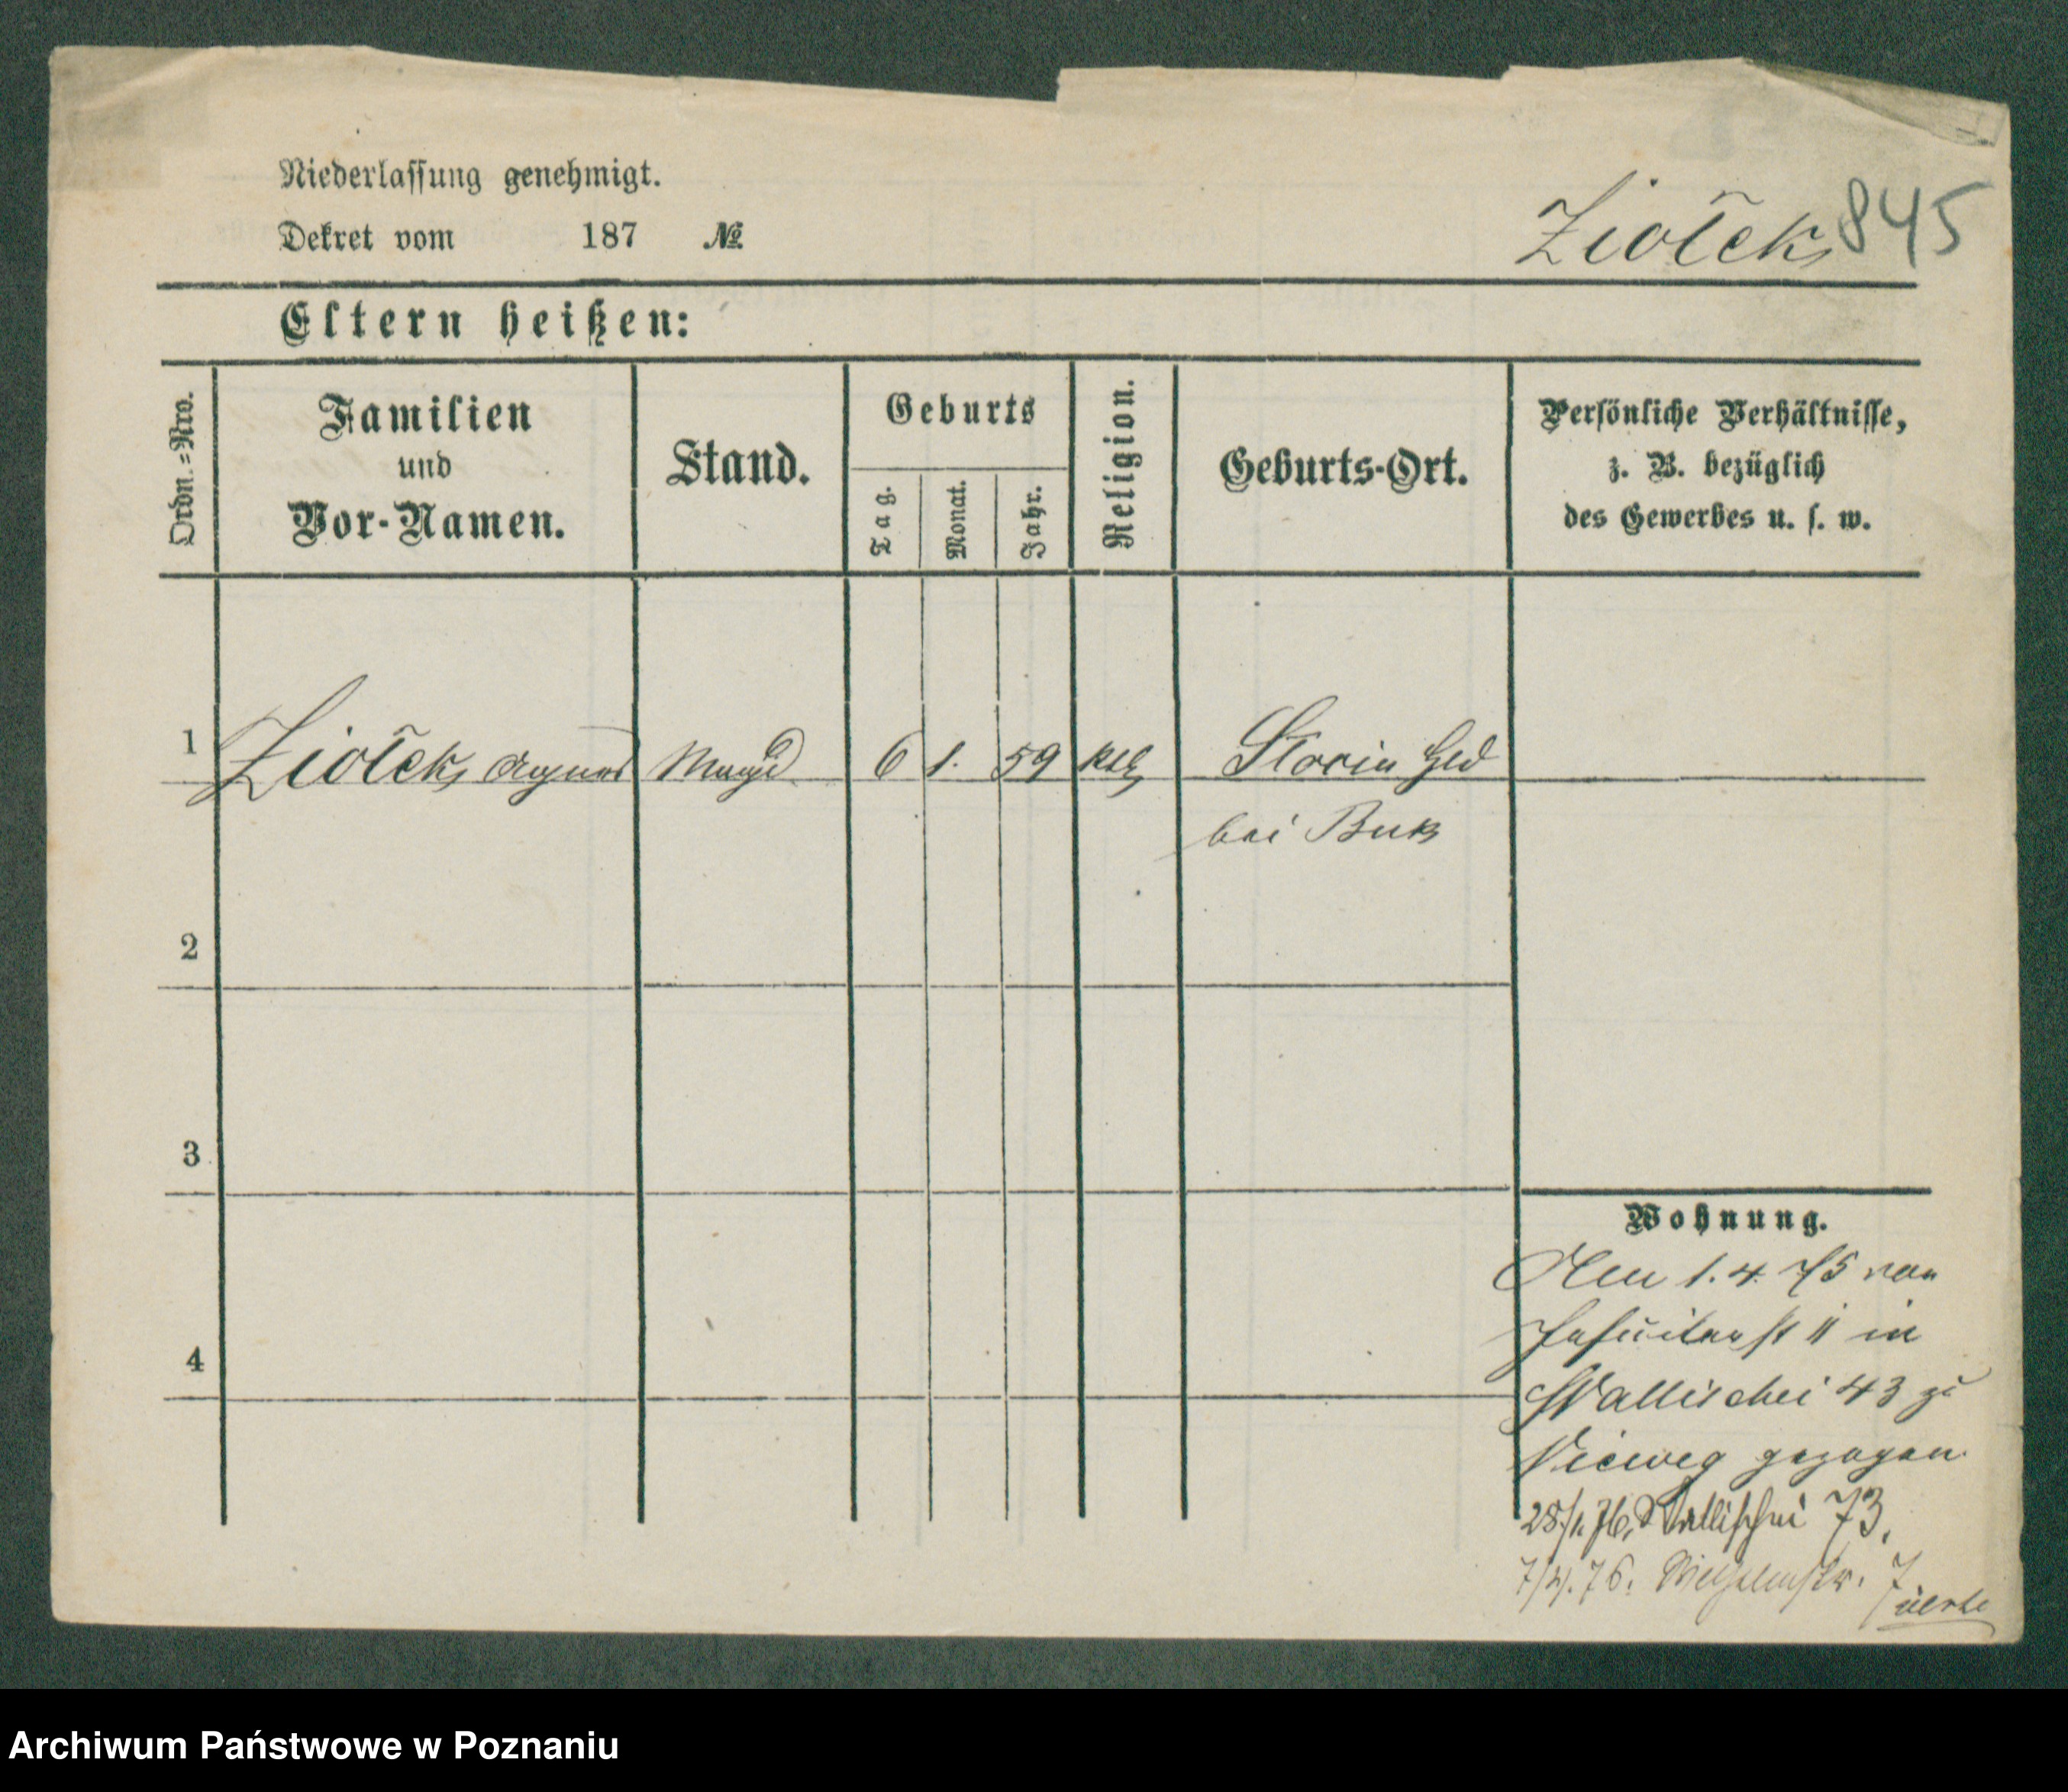 Niederlassung genehmigt.
Dekret vom 187 №
Ziołek 845
Eltern heißen:
Ordn.=Nro.
Familien
und
Vor-Namen.
Stand.
Geburts
Tag.
Monat.
Jahr.
Religion.
Geburts-Ort.
Persönliche Verhältnisse,
z. B. bezüglich
des Gewerbes u. s. w.
1 Ziołek Agnes Magd 6 1. 59 kth
bei Buk
2
3
4
Wohnung.
1. 4. 75 von
Jesuitenst 11 in
Wallischei 43 zu
Vieweg gezogen.
28/1. 76. Wallischei 73.
7/4. 76. Wilhelmstr. 7
Archiwum Państwowe w Poznaniu